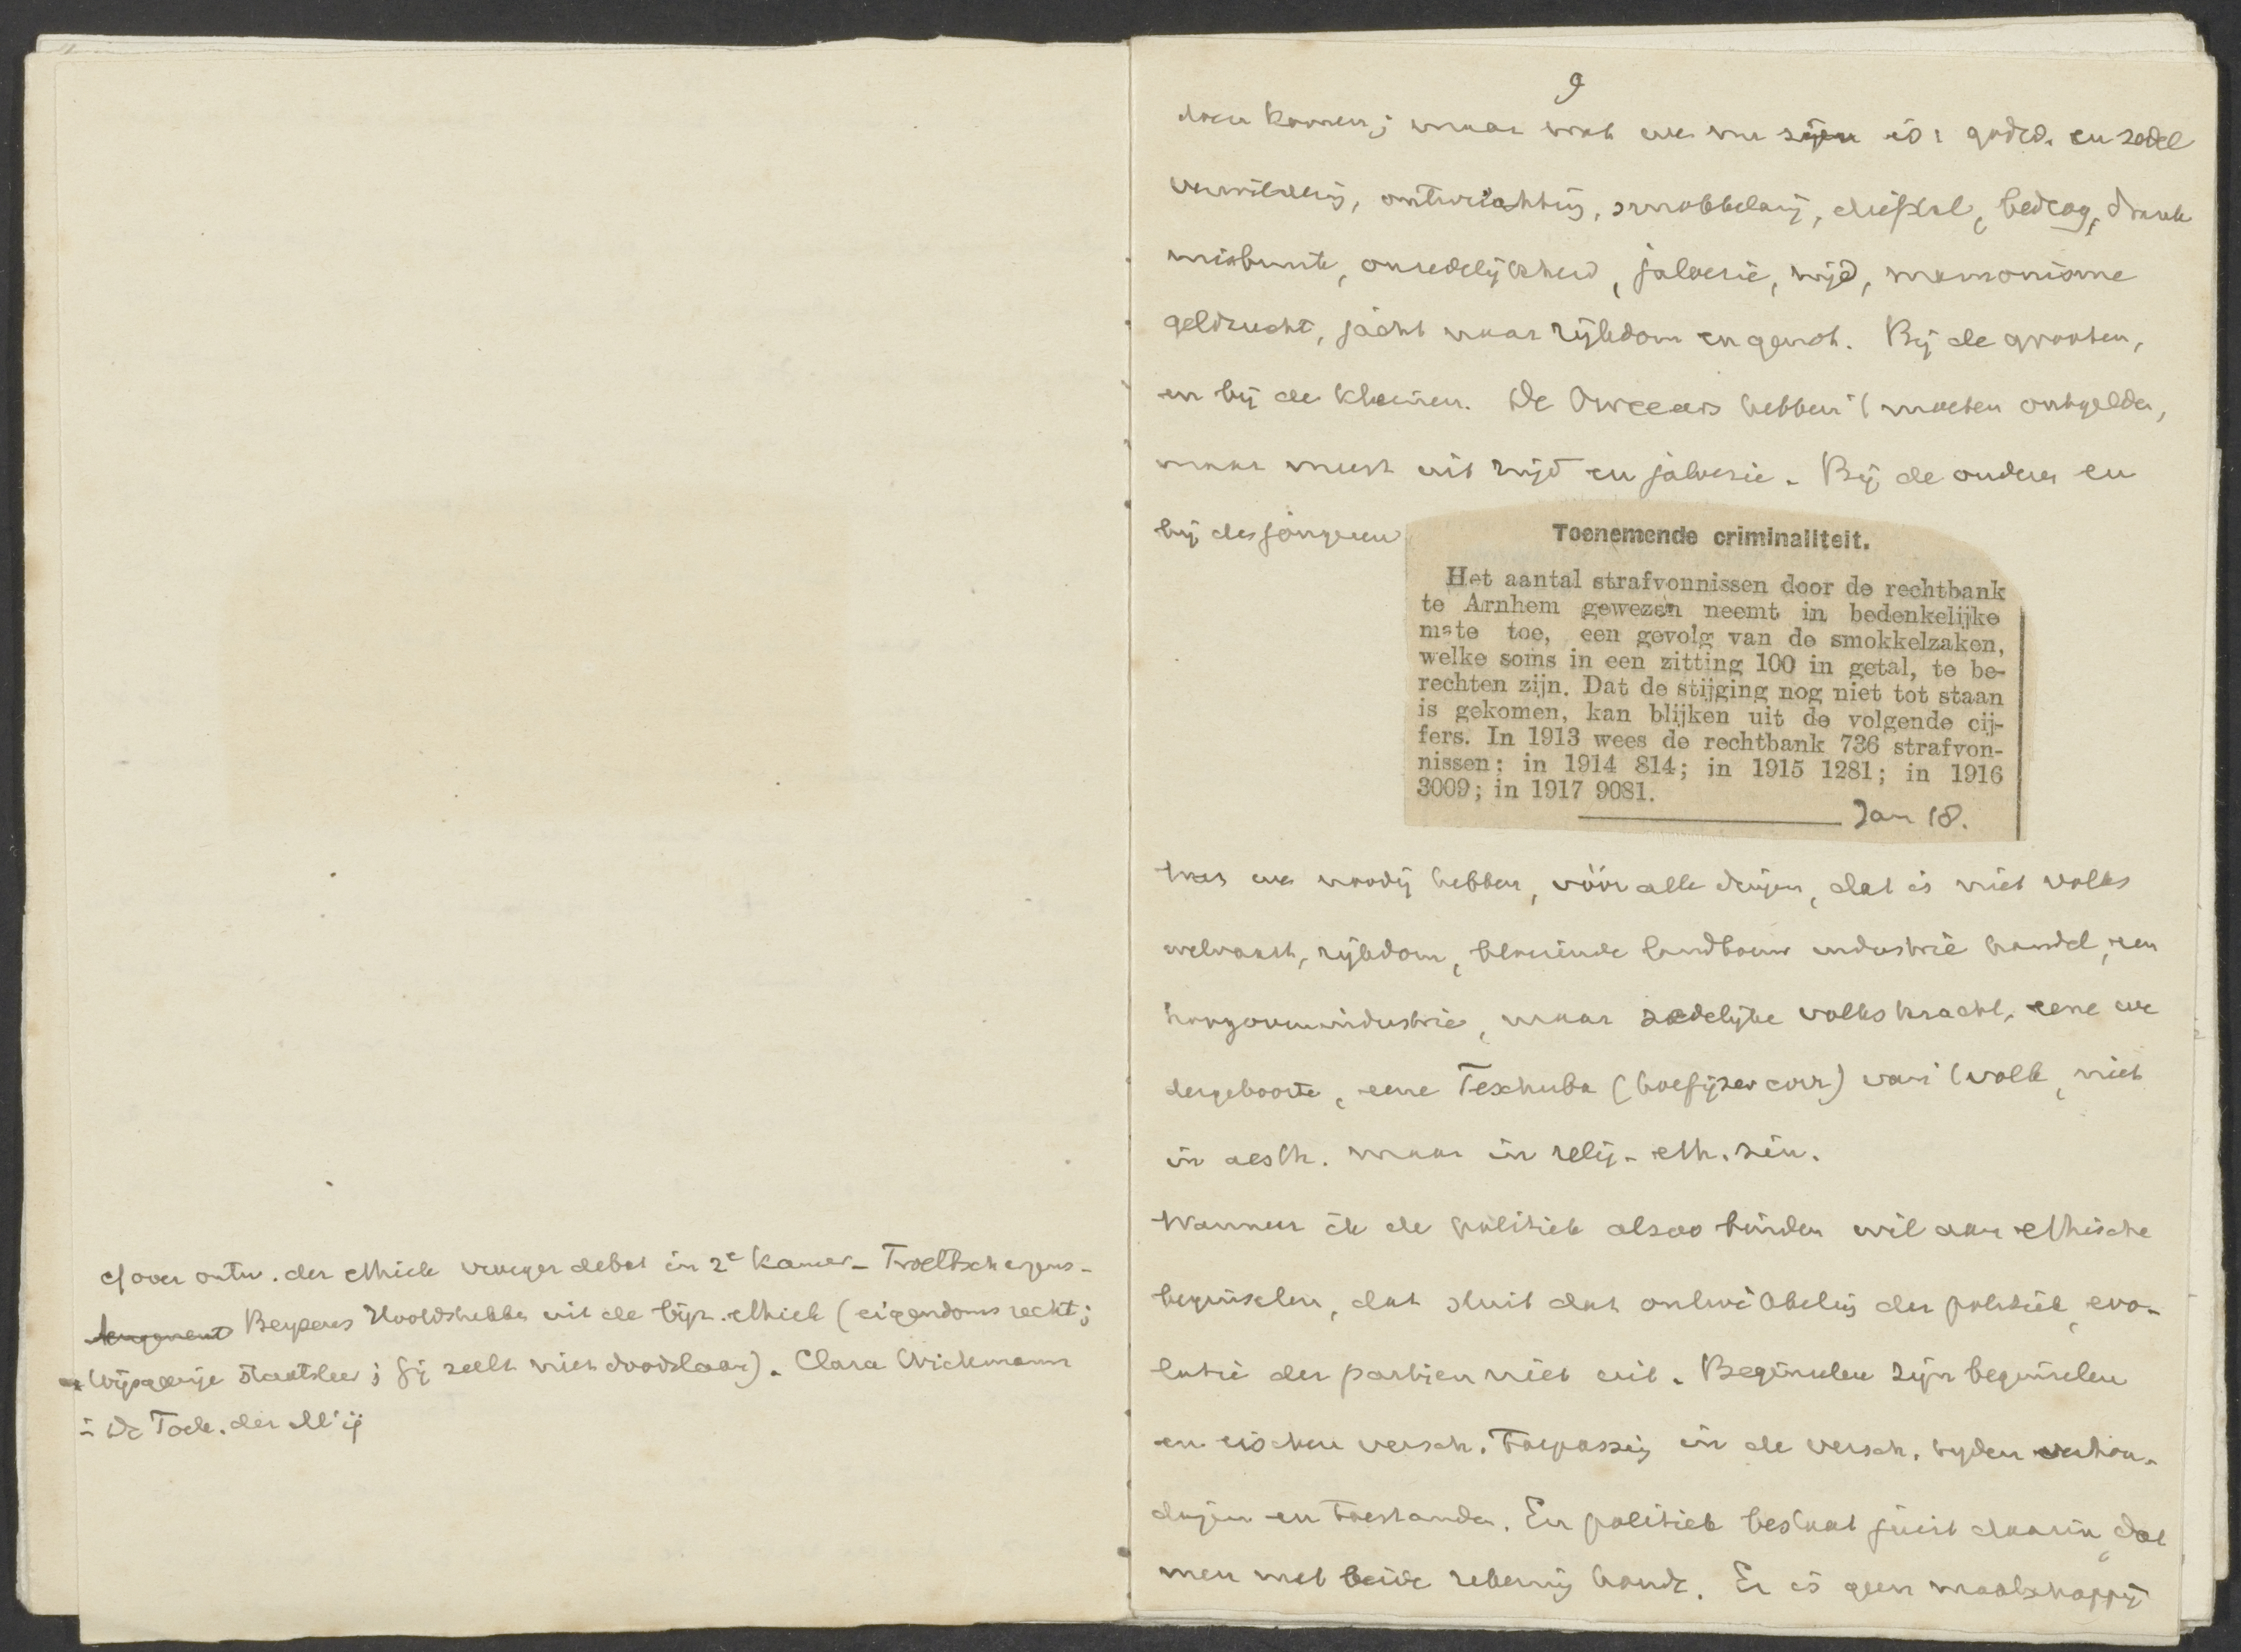 cf over ontw. der ethiek vroeger debat in 2e Kamer – Troeltsch
Beysens Hoofdstukken uit de bijz. ethiek (eigendomsrecht;
Wijsgeerige staatsleer; Gij zult niet doodslaan). Clara Wichmann
in De Toek. der M'ij
9
doen komen; maar wat we nu zijn is: godsd. en zedel
verwildering, ontwrichting, smokkelarij, diefstal, bedrog, drank
misbruik, onzedelijkheid, jaloezie, nijd, mamonisme
geldzucht, jacht naar rijkdom en genot. Bij de grooten,
en bij de kleinen. De Oweeers hebben 't moeten ontgelden,
maar meest uit nijd en jaloezie. Bij de ouderen en
bij de jongeren
Toenemende criminaliteit.
Het aantal strafvonnissen door de rechtbank
te Arnhem gewezen neemt in bedenkelijke
mate toe, een gevolg van de smokkelzaken,
welke soms in een zitting 100 in getal, te be-
rechten zijn. Dat de stijging nog niet tot staan
is gekomen, kan blijken uit de volgende cij-
fers. In 1913 wees de rechtbank 736 strafvon-
nissen; in 1914 814; in 1915 1281; in 1916
3009; in 1917 9081.
Jan 18.
Wat we noodig hebben, vóór alle dingen, dat is niet volks
welvaart, rijkdom, bloeiende landbouw industrie handel, een
hoogovenindustrie, maar zedelijke volkskracht, eene we
dergeboorte, eene Teschuba (hoefijzer corr) van 't volk, niet
in aesth. maar in relig.-eth. zin.
Wanneer ik de politiek alzoo binden wil aan ethische
beginselen, dat sluit dat ontwikkeling der politiek, evo-
lutie der partijen niet uit. Beginselen zijn beginselen
en eischen versch. toepassing in de versch. tijden verhou-
dingen en toestanden. En politiek bestaat juist daarin, dat
men met beide rekening houdt. Er is geen maatschappij